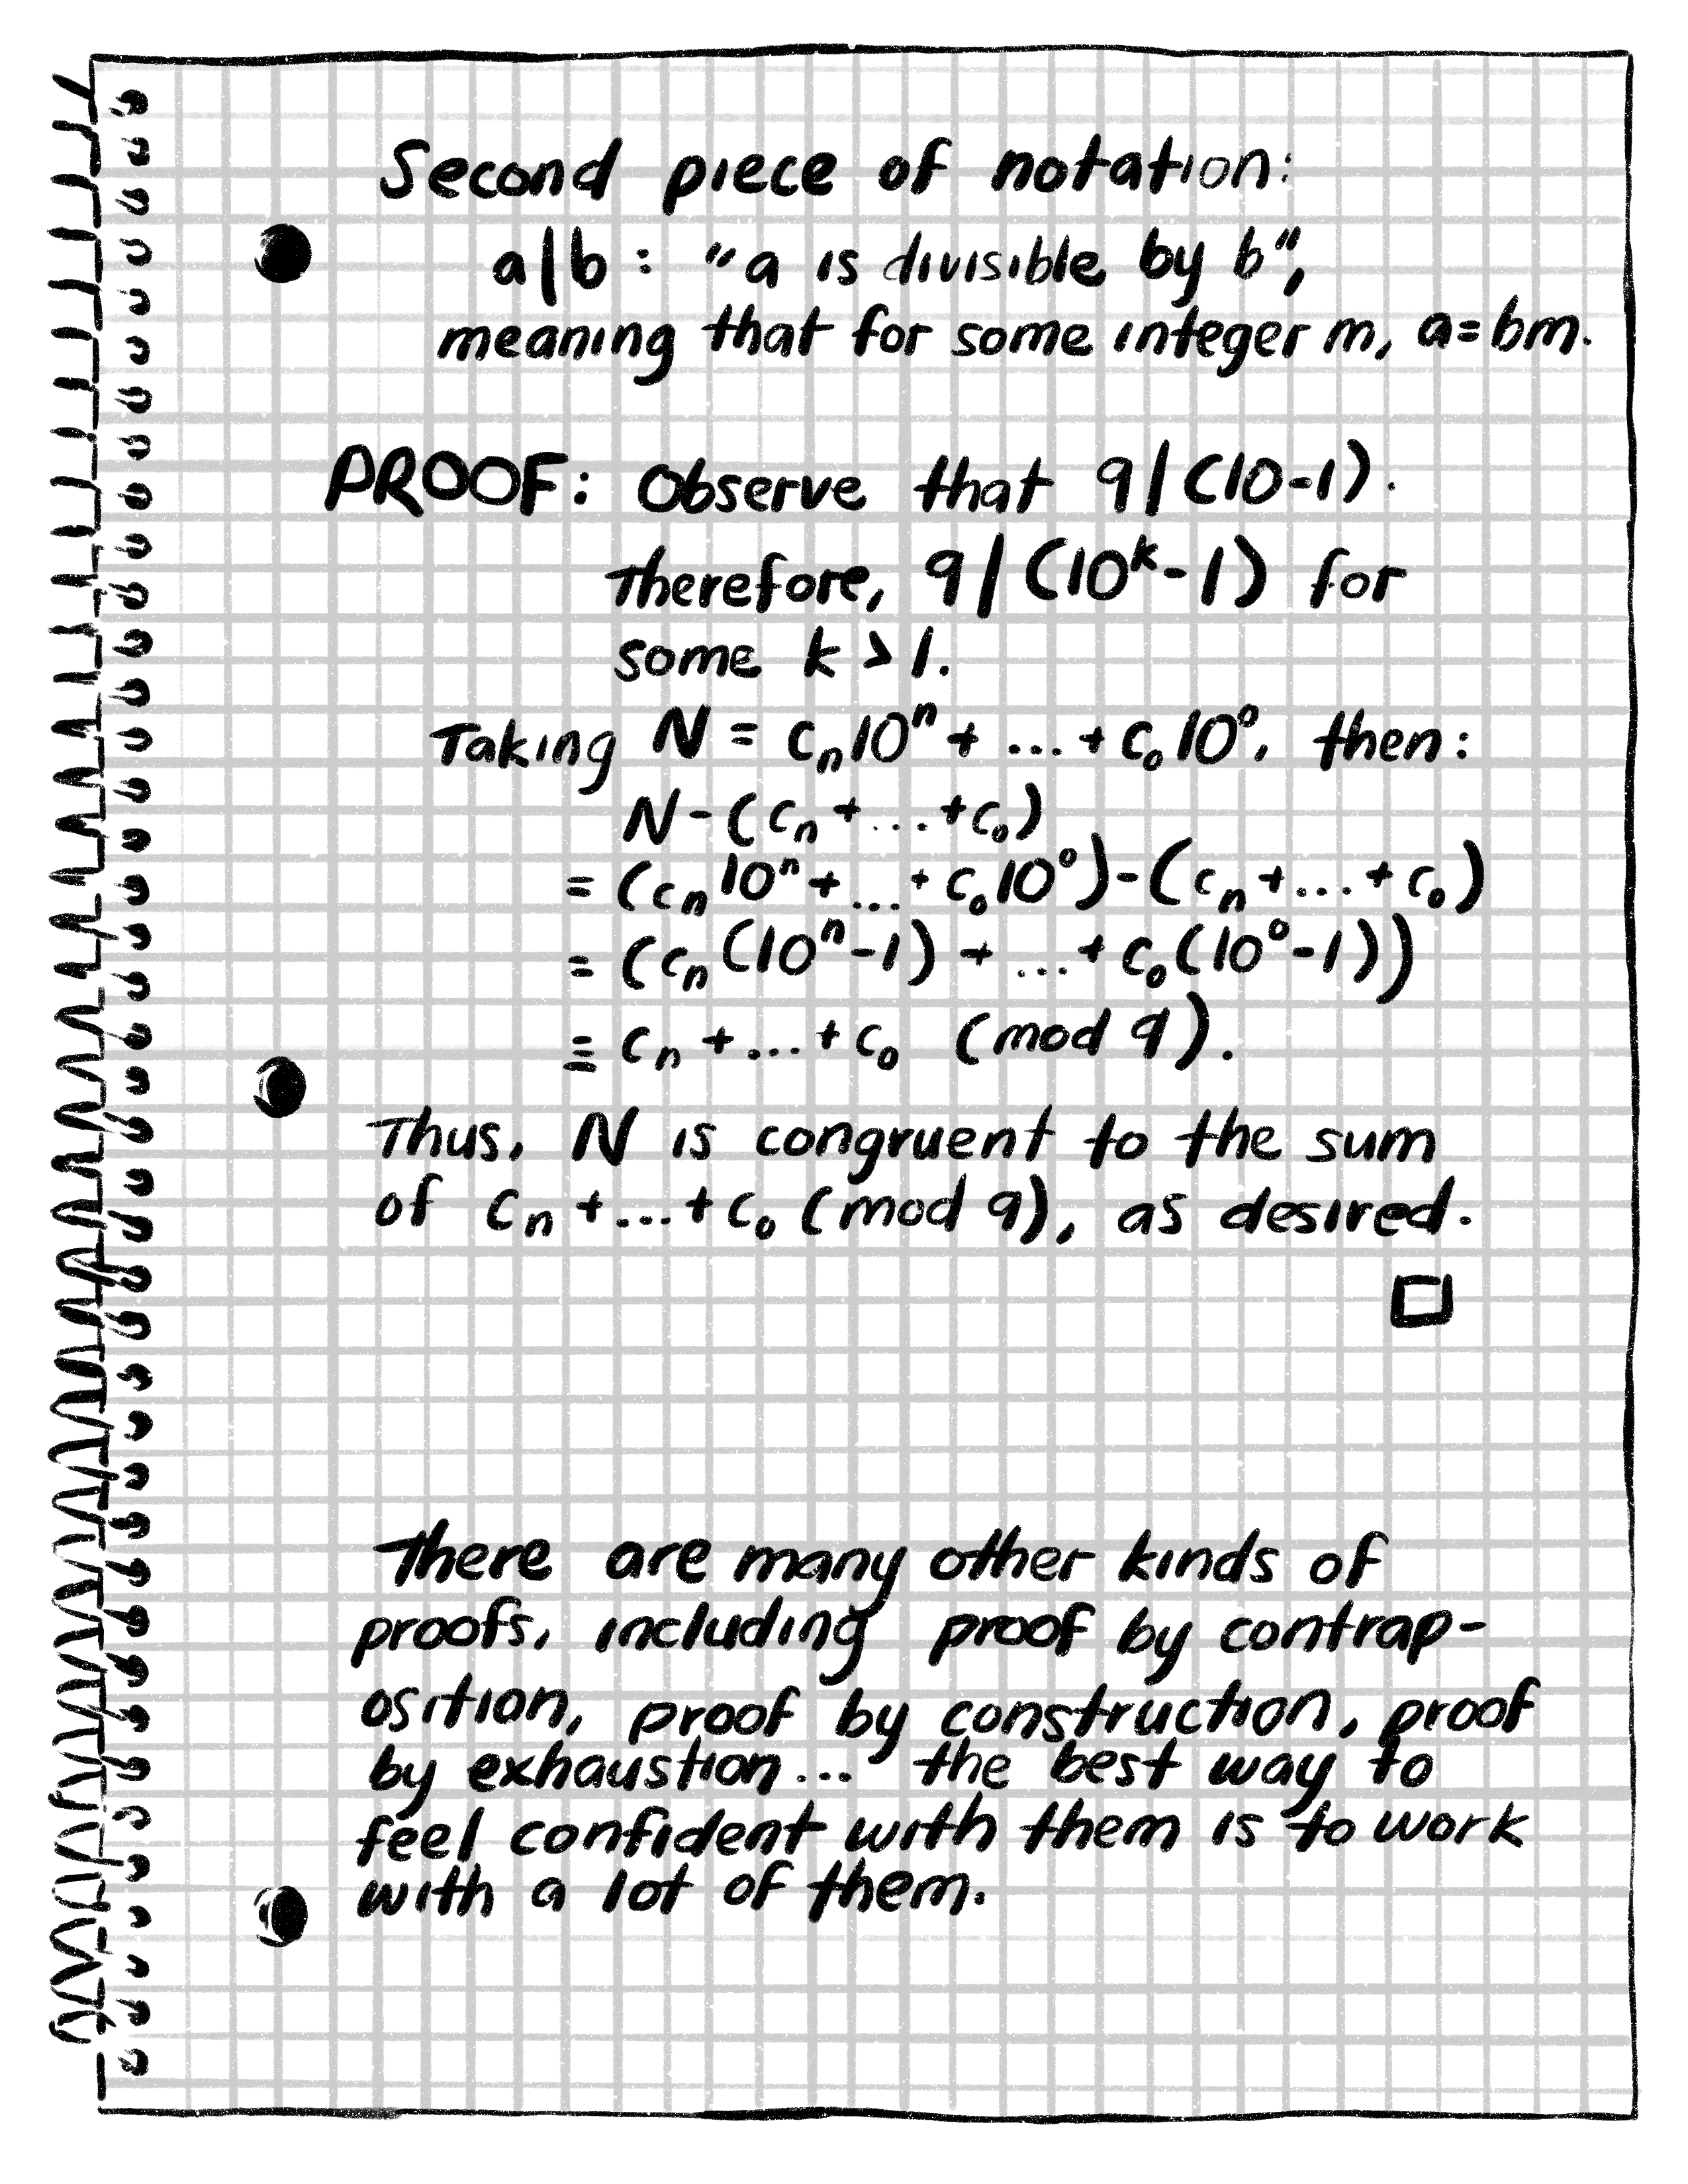 Second piece of notation:
a|b : "a is divisible by b",
meaning that for some integer m, a=bm.
PROOF: Observe that 9|(10-1).
Therefore, 9|(10^k-1) for
some k > 1.
Taking N = c_n10^n + ... + c_0 10^0, then:
N-(c_n+...+c_0)
= (c_n10^n+...+c_010^0)-(c_n+...+c_0)
= (c_n(10^n-1) + ...+c_0(10^0-1))
≡ c_n+...+c_0 (mod 9).
Thus, N is congruent to the sum
of c_n+...+c_0 (mod 9), as desired.
□
There are many other kinds of
proofs, including proof by contrap-
osition, proof by construction, proof
by exhaustion... the best way to
feel confident with them is to work
with a lot of them.